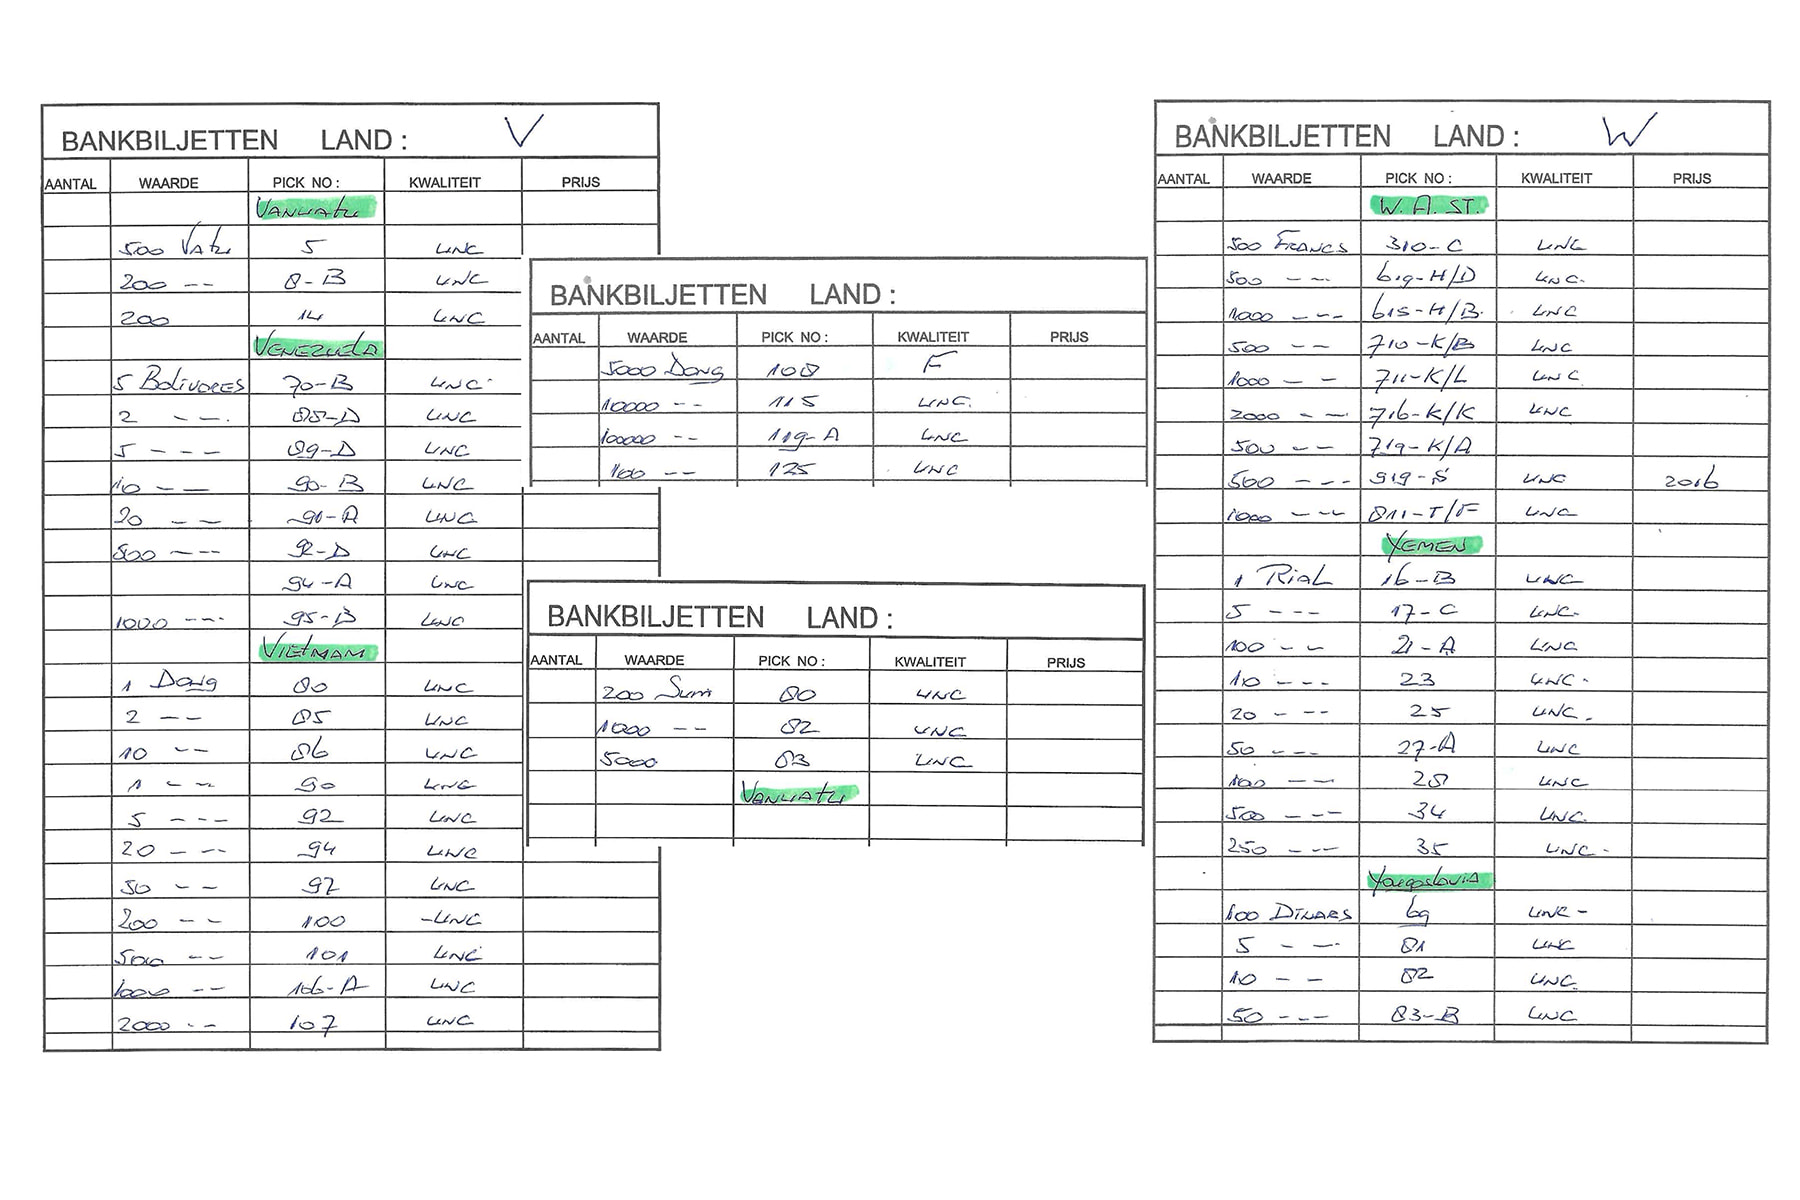 BANKBILJETTEN LAND : V
AANTAL WAARDE PICK NO : KWALITEIT PRIJS
Vanuatu
500 Vatu 5 UNC
200 -- 8-B UNC
200 14 UNC
VENEZUELA
5 Bolivores 70-B UNC
2 -- 88-D UNC
5 --- 89-D UNC
10 -- 90-B UNC
20 -- 91-A UNC
500 --- 92-D UNC
94-A UNC
1000 --- 95-B UNC
VIETNAM
1 Dong 80 UNC
2 -- 85 UNC
10 -- 86 UNC
1 --- 90 UNC
5 --- 92 UNC
20 --- 94 UNC
50 -- 97 UNC
200 -- 100 -UNC
500 -- 101 UNC
1000 -- 106-A UNC
2000 -- 107 UNC
BANKBILJETTEN LAND :
AANTAL WAARDE PICK NO : KWALITEIT PRIJS
5000 Dong 108 F
10000 -- 115 UNC.
100000 -- 119-A UNC
100 -- 125 UNC
BANKBILJETTEN LAND :
AANTAL WAARDE PICK NO : KWALITEIT PRIJS
200 Sum 80 UNC
1000 -- 82 UNC
5000 83 UNC
Vanuatu
BANKBILJETTEN LAND : W
AANTAL WAARDE PICK NO : KWALITEIT PRIJS
W. A. ST.
500 FRANCS 310-C UNC
500 -- 619-H/D UNC.
1000 --- 615-H/B. UNC
500 -- 710-K/B UNC
1000 -- 711-K/L UNC
2000 -- 716-K/K UNC
500 -- 719-K/A
500 --- 919-S UNC 2016
1000 --- 811-T/F UNC
YEMEN
1 RIAL 16-B UNC
5 --- 17-C UNC.
100 -- 21-A UNC
10 --- 23 UNC.
20 --- 25 UNC.
50 --- 27-A UNC
100 -- 28 UNC
500 --- 34 UNC.
250 --- 35 UNC.
Yougoslavia
100 DINARS 69 UNC-
5 --- 81 UNC
10 -- 82 UNC.
50 --- 83-B UNC